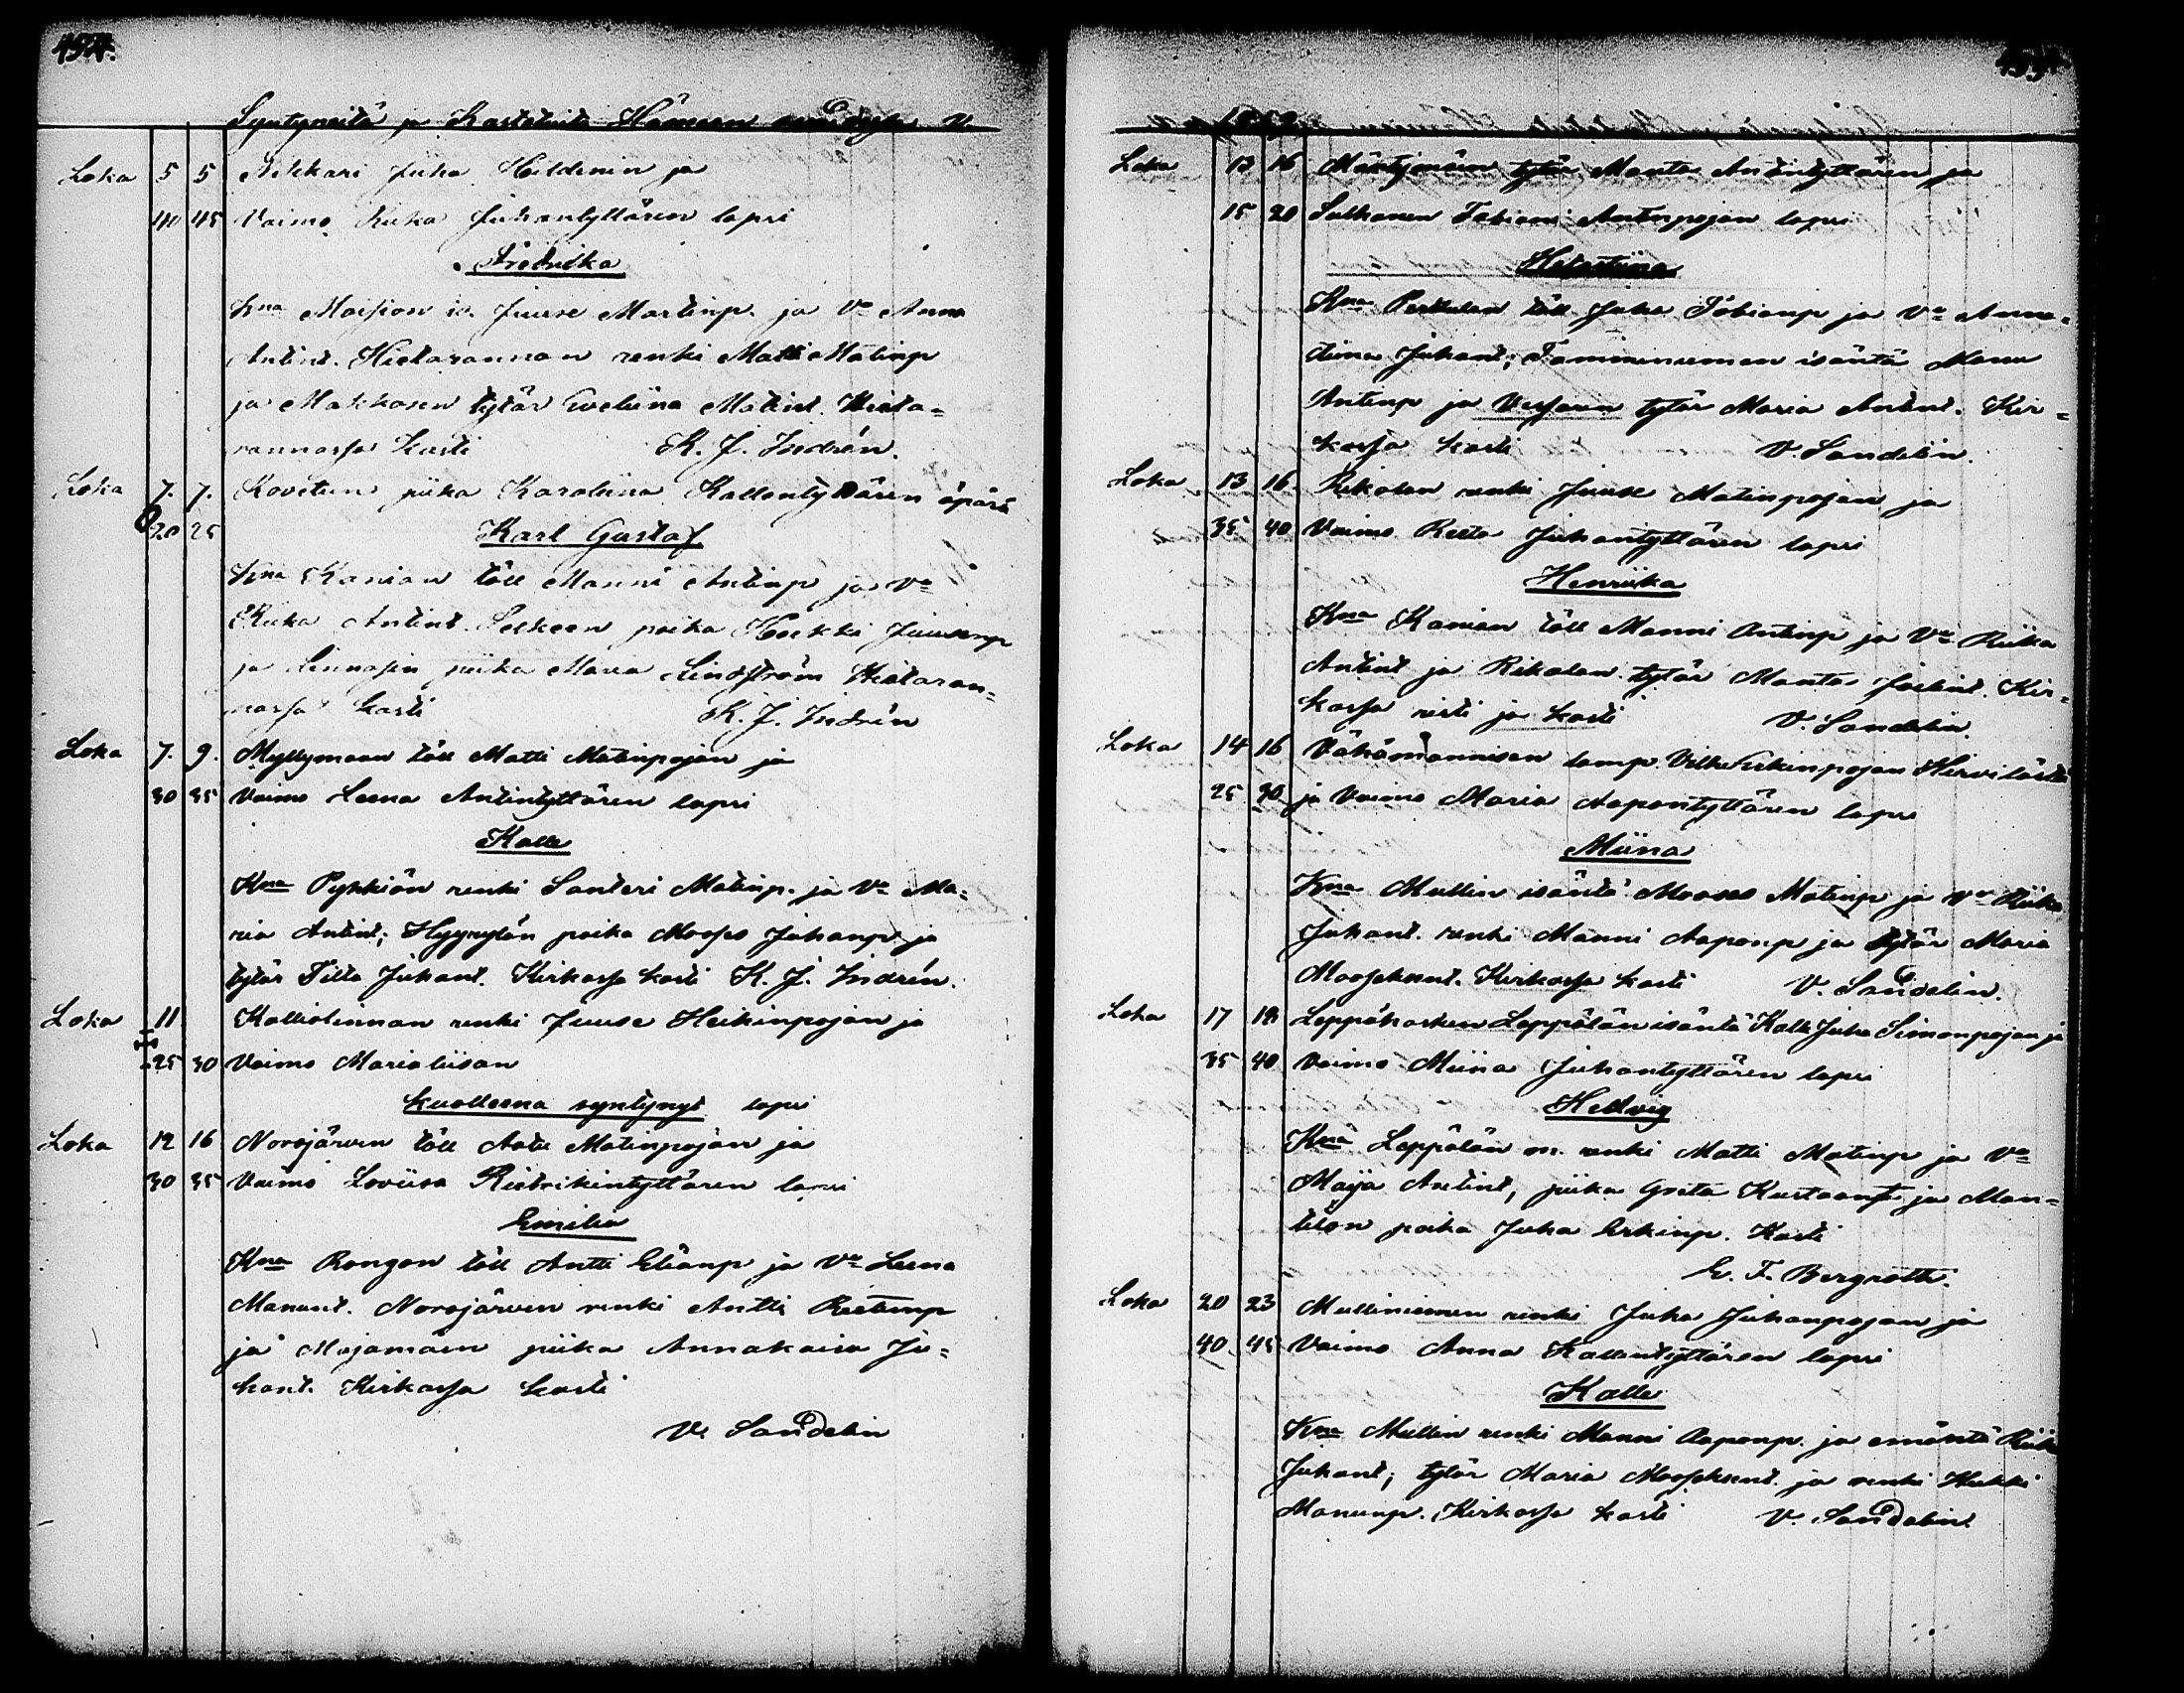 Syntyneitä ja Kastetuita Hämeen v.
Loka 5 5 Nikkari Juha Heldenin ja
40 45 Vaimo Riika Juhantyttären lapsi
Fredrika
Kna is. Juuse Martinp. ja Va Anna
Antint. Hietarannan renki Matti Matinp
ja Makkosen tytär Eveliina Matint. Hieta=
rannassa kasti K. J. Indrén.
Loka 7. 7. piika Karoliina Kallentyttären äpärä
20 25 Karl Gustaf
Kna Kanian töll Manni Antinp ja Va
Riika Antint. poika Heikki Juusenp
ja piika Maria Lindström Hietaran=
nassa kasti K. J. Indrén
Loka 7. 9. Myllymaan töll Matti Matinpojan ja
30 35 Vaimo Leena Antintyttären lapsi
Kalle
Kna Pyhkiön renki Santeri Matinp. ja Va Ma=
ria Antint; Hyynylän poika Mooses Juhanp. ja
tytär Tilta Juhant. Kirkossa kasti K. J. Indrén.
Loka 11 Kalliolinnan renki Juuse Heikinpojan ja
25 30 Vaimo Marialiisan
kuolleena syntynyt lapsi
Loka 12 16 Norojärven töll Aatu Matinpojan ja
30 35 Vaimo Loviisa Rietrikintyttären lapsi
Emilia
Kna Rongon töll Antti Eliånp ja Va Leena
Manunt. Norojärven renki Antti
ja Majamäen piika Annakaisa Ju=
hant. Kirkossa kasti
V. Sandelin
Loka 13 16 Mäntymäen tytär Manta Antintyttären ja
15 20 Salkonen Fabiani Antinpojan lapsi
Hetastiina
Kna Perttulan töll Juha Tobianp ja Va Anna=
stiina Juhant; Tammenniemen isäntä Manu
Antinp ja tytär Maria Antint. Kir=
kossa kasti V. Sandelin.
Loka 13 16. Rikalan renki Juuse Matinpojan ja
35 40 Vaimo Reeta Juhantyttären lapsi
Henriika
Kna Kanian töll Manni Antinp ja Va Riika
Antint ja Rikalan tytär Manta Kir=
kossa risti ja kasti V. Sandelin.
Loka 14 16 Vähämannisen lamp. Ville Eerikinpojan
25 30 ja Vaimo Maria Aapontyttären lapsi
Miina
Kna Mullin isäntä Mooses Matinp ja Va Riika
Juhant. renki Manni Aaponp ja tytär Maria
Mooseksent. Kirkossa kasti V. Sandelin.
Loka 17 19 Leppälän isäntä Kalle Juha Simonpojan ja
35 40 Vaimo Miina Juhantyttären lapsi
Hedvig
Kna Leppälän m. renki Matti Matinp ja Va
Maija Antint, piika Greta Kustaant ja Man=
tilan poika Juha Erkinp. Kasti
E. F. Bergroth.
Loka 20 23 Mulliniemen renki Juha Juhanpojan ja
40 45 Vaimo Anna Kallentyttären lapsi
Kalle
Kna Mullin renki Manni Aaponp. ja emäntä Riika
Juhant; tytär Maria Mooseksent. ja renki Heikki
Manunp. Kirkossa kasti V. Sandelin.